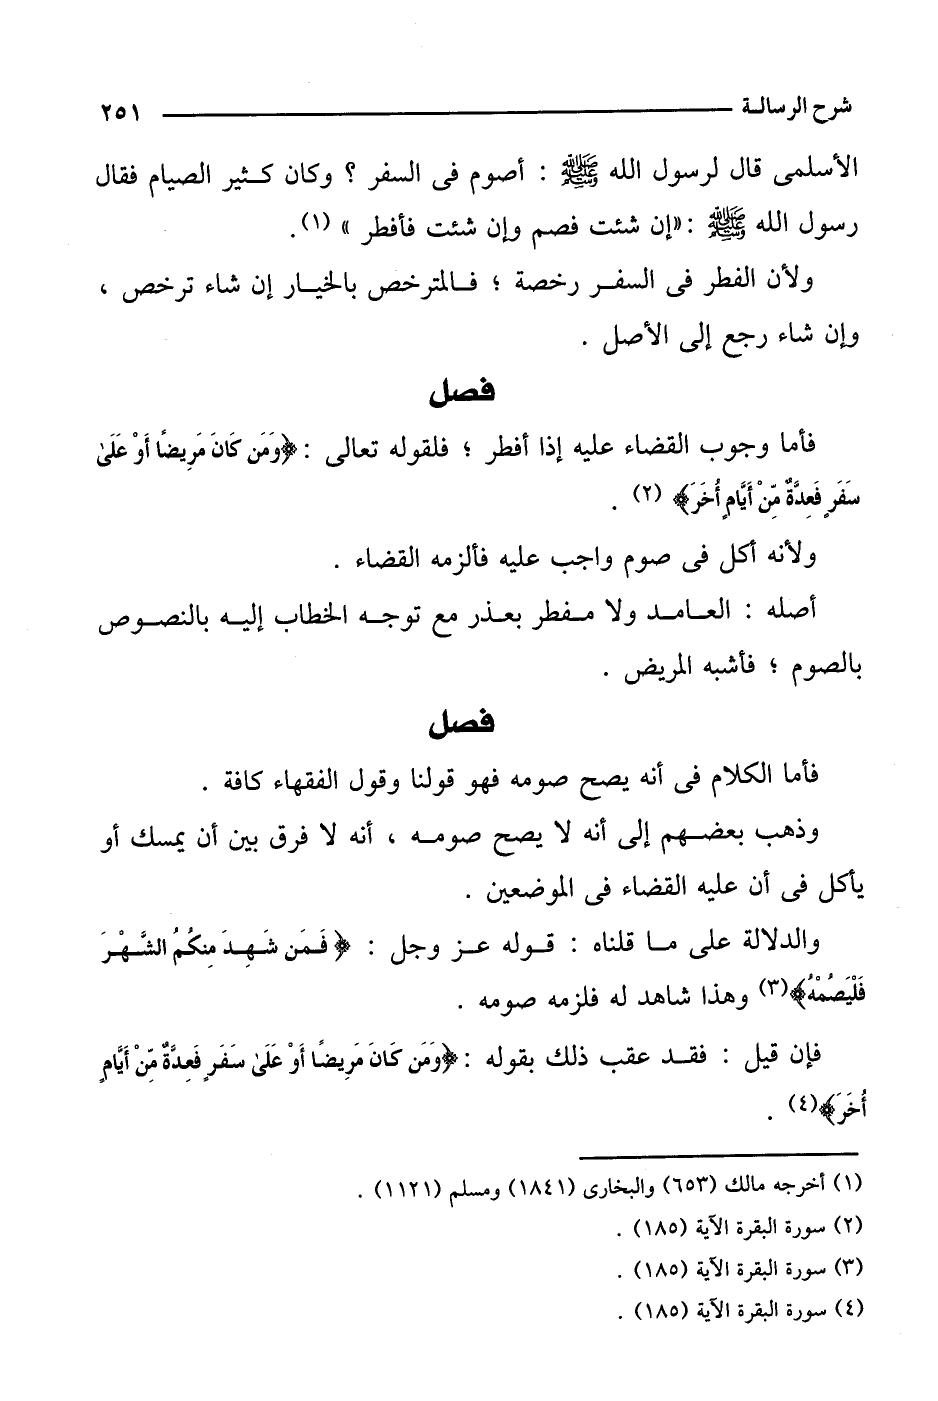 شرح الرسالة ٢٥١
الأسلمى قال لرسول الله ﷺ : أصوم فى السفر ؟ وكان كثير الصيام فقال
رسول الله ﷺ :«إن شئت فصم وإن شئت فأفطر » (١).
ولأن الفطر فى السفر رخصة ؛ فالمترخص بالخيار إن شاء ترخص ،
وإن شاء رجع إلى الأصل .
فصل
فأما وجوب القضاء عليه إذا أفطر ؛ فلقوله تعالى :﴿وَمَن كَانَ مَرِيضًا أَوْ عَلَىٰ
سَفَرٍ فَعِدَّةٌ مِّنْ أَيَّامٍ أُخَرَ﴾ (٢) .
ولأنه أكل فى صوم واجب عليه فألزمه القضاء .
أصله : العامد ولا مفطر بعذر مع توجه الخطاب إليه بالنصوص
بالصوم ؛ فأشبه المريض .
فصل
فأما الكلام فى أنه يصح صومه فهو قولنا وقول الفقهاء كافة .
وذهب بعضهم إلى أنه لا يصح صومه ، أنه لا فرق بين أن يمسك أو
يأكل فى أن عليه القضاء فى الموضعين .
والدلالة على ما قلناه : قوله عز وجل : ﴿ فَمَن شَهِدَ مِنكُمُ الشَّهْرَ
فَلْيَصُمْهُ﴾(٣) وهذا شاهد له فلزمه صومه .
فإن قيل : فقد عقب ذلك بقوله :﴿وَمَن كَانَ مَرِيضًا أَوْ عَلَىٰ سَفَرٍ فَعِدَّةٌ مِّنْ أَيَّامٍ
أُخَرَ﴾(٤) .
(١) أخرجه مالك (٦٥٣) والبخارى (١٨٤١) ومسلم (١١٢١) .
(٢) سورة البقرة الآية (١٨٥) .
(٣) سورة البقرة الآية (١٨٥) .
(٤) سورة البقرة الآية (١٨٥) .